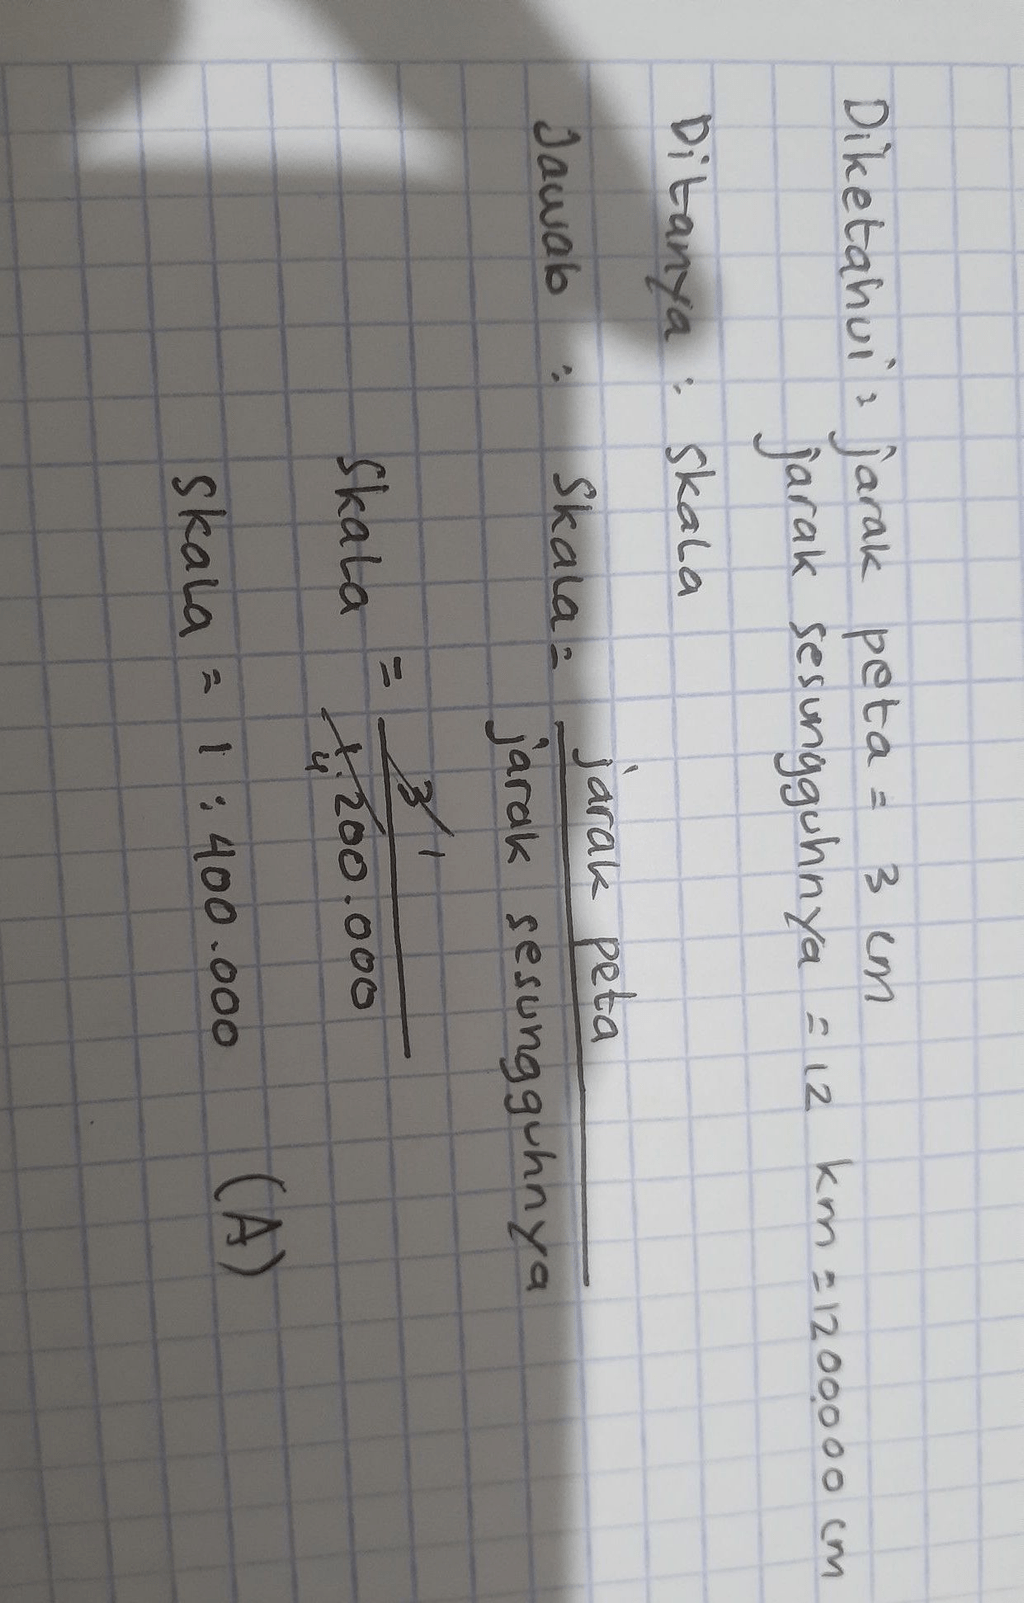 Diketahui : jarak peta = 3 cm
jarak sesungguhnya = 12 km = 1200000 cm
Ditanya : Skala
Jawab : Skala = jarak peta
jarak sesungguhnya
Skala = 3 1
1.200.000
4
Skala = 1 : 400.000 (A)